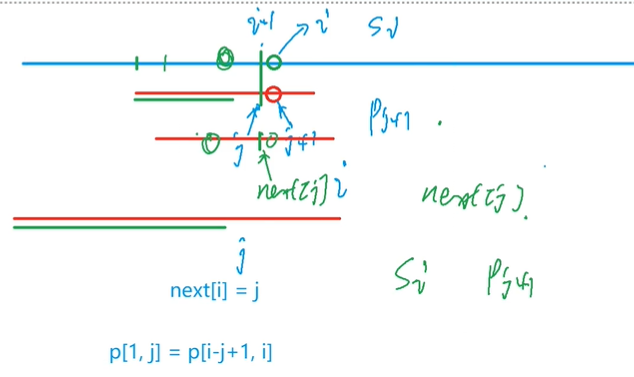 i-1 i S_i
j j+1 P_{j+1}
next[j] next[j]
j S_i P_{j+1}
next[i] = j
p[1, j] = p[i-j+1, i]